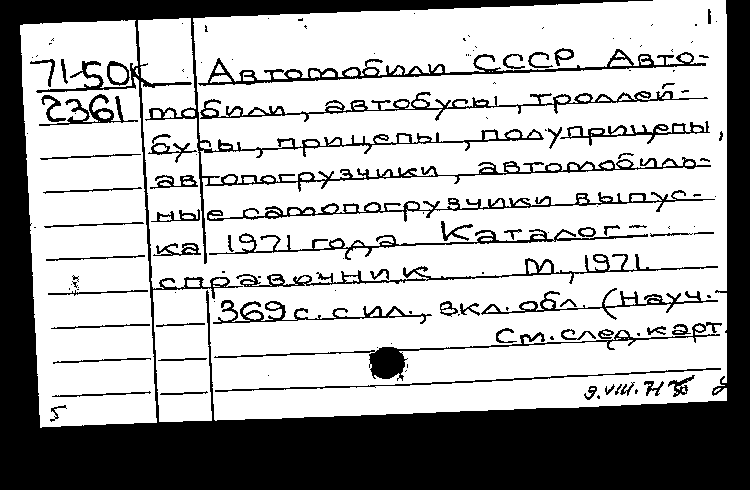 71-50К Автомобили СССР. Авто-
2361 мобили, автобусы, троллей-
бусы, прицепы, полуприцепы,
автопогрузчики, автомобиль-
ные самопогрузчики выпус-
ка 1971 года. Каталог-
справочник. М., 1971.
369 с. с ил., вкл. обл. (Науч.-
См. след. карт.
9.VIII.71
5